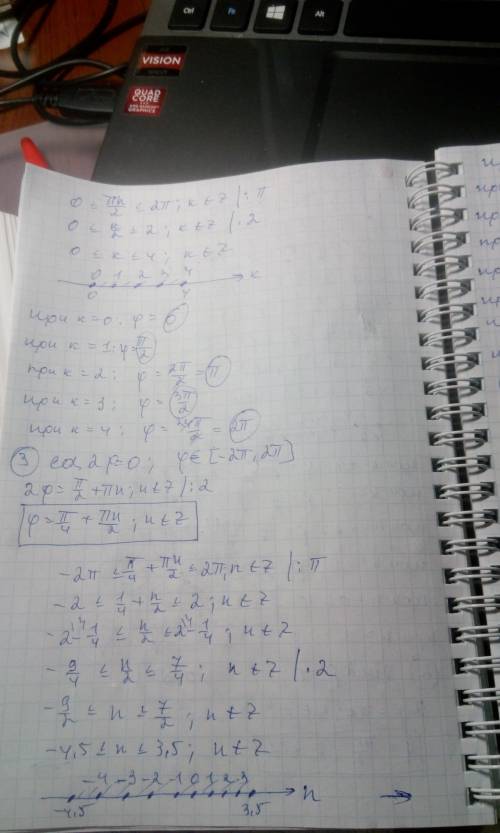 Ctrl Fn Alt
AMD
VISION
AMD
QUAD CORE
0 ≤ πk/2 ≤ 2π; k ∈ Z |: π
0 ≤ k/2 ≤ 2; k ∈ Z |· 2
0 ≤ k ≤ 4; k ∈ Z
0 1 2 3 4 k
0 4
при k = 0: φ = 0
при k = 1: φ = π/2
при k = 2; φ = 2π/2 = π
при k = 3; φ = 3π/2
при k = 4; φ = 4π/2 = 2π
③ cos 2φ = 0; φ ∈ [-2π, 2π]
2φ = π/2 + πn; n ∈ Z |: 2
φ = π/4 + πn/2; n ∈ Z
-2π ≤ π/4 + πn/2 ≤ 2π; n ∈ Z |: π
-2 ≤ 1/4 + n/2 ≤ 2; n ∈ Z
-2 - 1/4 ≤ n/2 ≤ 2 - 1/4; n ∈ Z
-9/4 ≤ n/2 ≤ 7/4; n ∈ Z |· 2
-9/2 ≤ n ≤ 7/2; n ∈ Z
-4,5 ≤ n ≤ 3,5; n ∈ Z
-4 -3 -2 -1 0 1 2 3 n →
-4,5 3,5